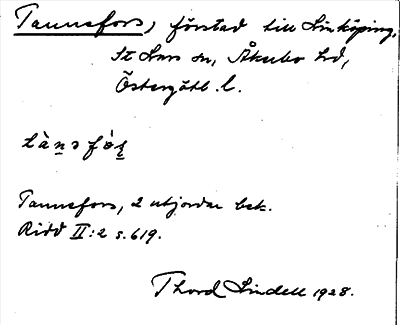 Tannefors, förstad till Linköping,
St Lars sn, Åkerbo hd,
Östergötl. l.
Tannefors, 2 utjordar bek.
Ridd II:2 s. 619.
Thord Lindell 1928.